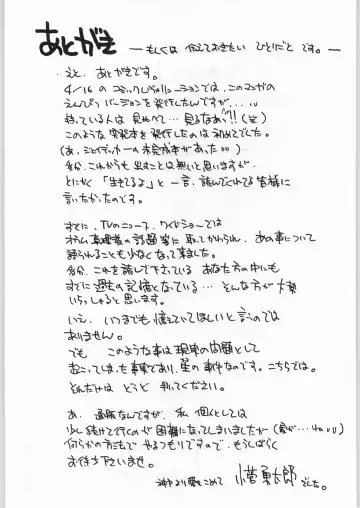 あとがき ―もしくは 伝えておきたい ひとりごと です。―
・えと、あとがきです。
4/16のコミックレヴォリューションでは、このマンガの
えんぴつバージョンを発行したんですが、...
持っている人は 見比べて… 見るなぁっ!!(笑)
このような 突発本を発行したのは初めてでした。
(あ、ジェイデッカーの未完成本があった)
多分、これからも出すことは無いと思いますが
とにかく「生きてるよ」と一言、読んでくれてる皆様に
言いたかったのです。
すでに、TVのニュース、ワイドショーでは
オウム真理教の話題等に取ってかわられ、あの事について
語られることも少なくなって来ました。
多分、これを読んで下さっている あなた方の中にも
すでに過去の記憶となっている… そんな方が大勢
いらっしゃると思います。
いえ、いつまでも憶えていてほしいと言うのでは
ありません。
でも このような事は現実の問題として
起こってしまった事実であり、星の事件なのです。こちらでは。
それだけは どうぞ 判ってください。
あ、通販なんですが、私 個人としては
少し続けて行くのが困難になってしまいましたが(家が…)
何らかの方法で やるつもりですので、もうしばらく
お待ち下さいませ。
神戸より愛をこめて 菅勇太郎 でした。